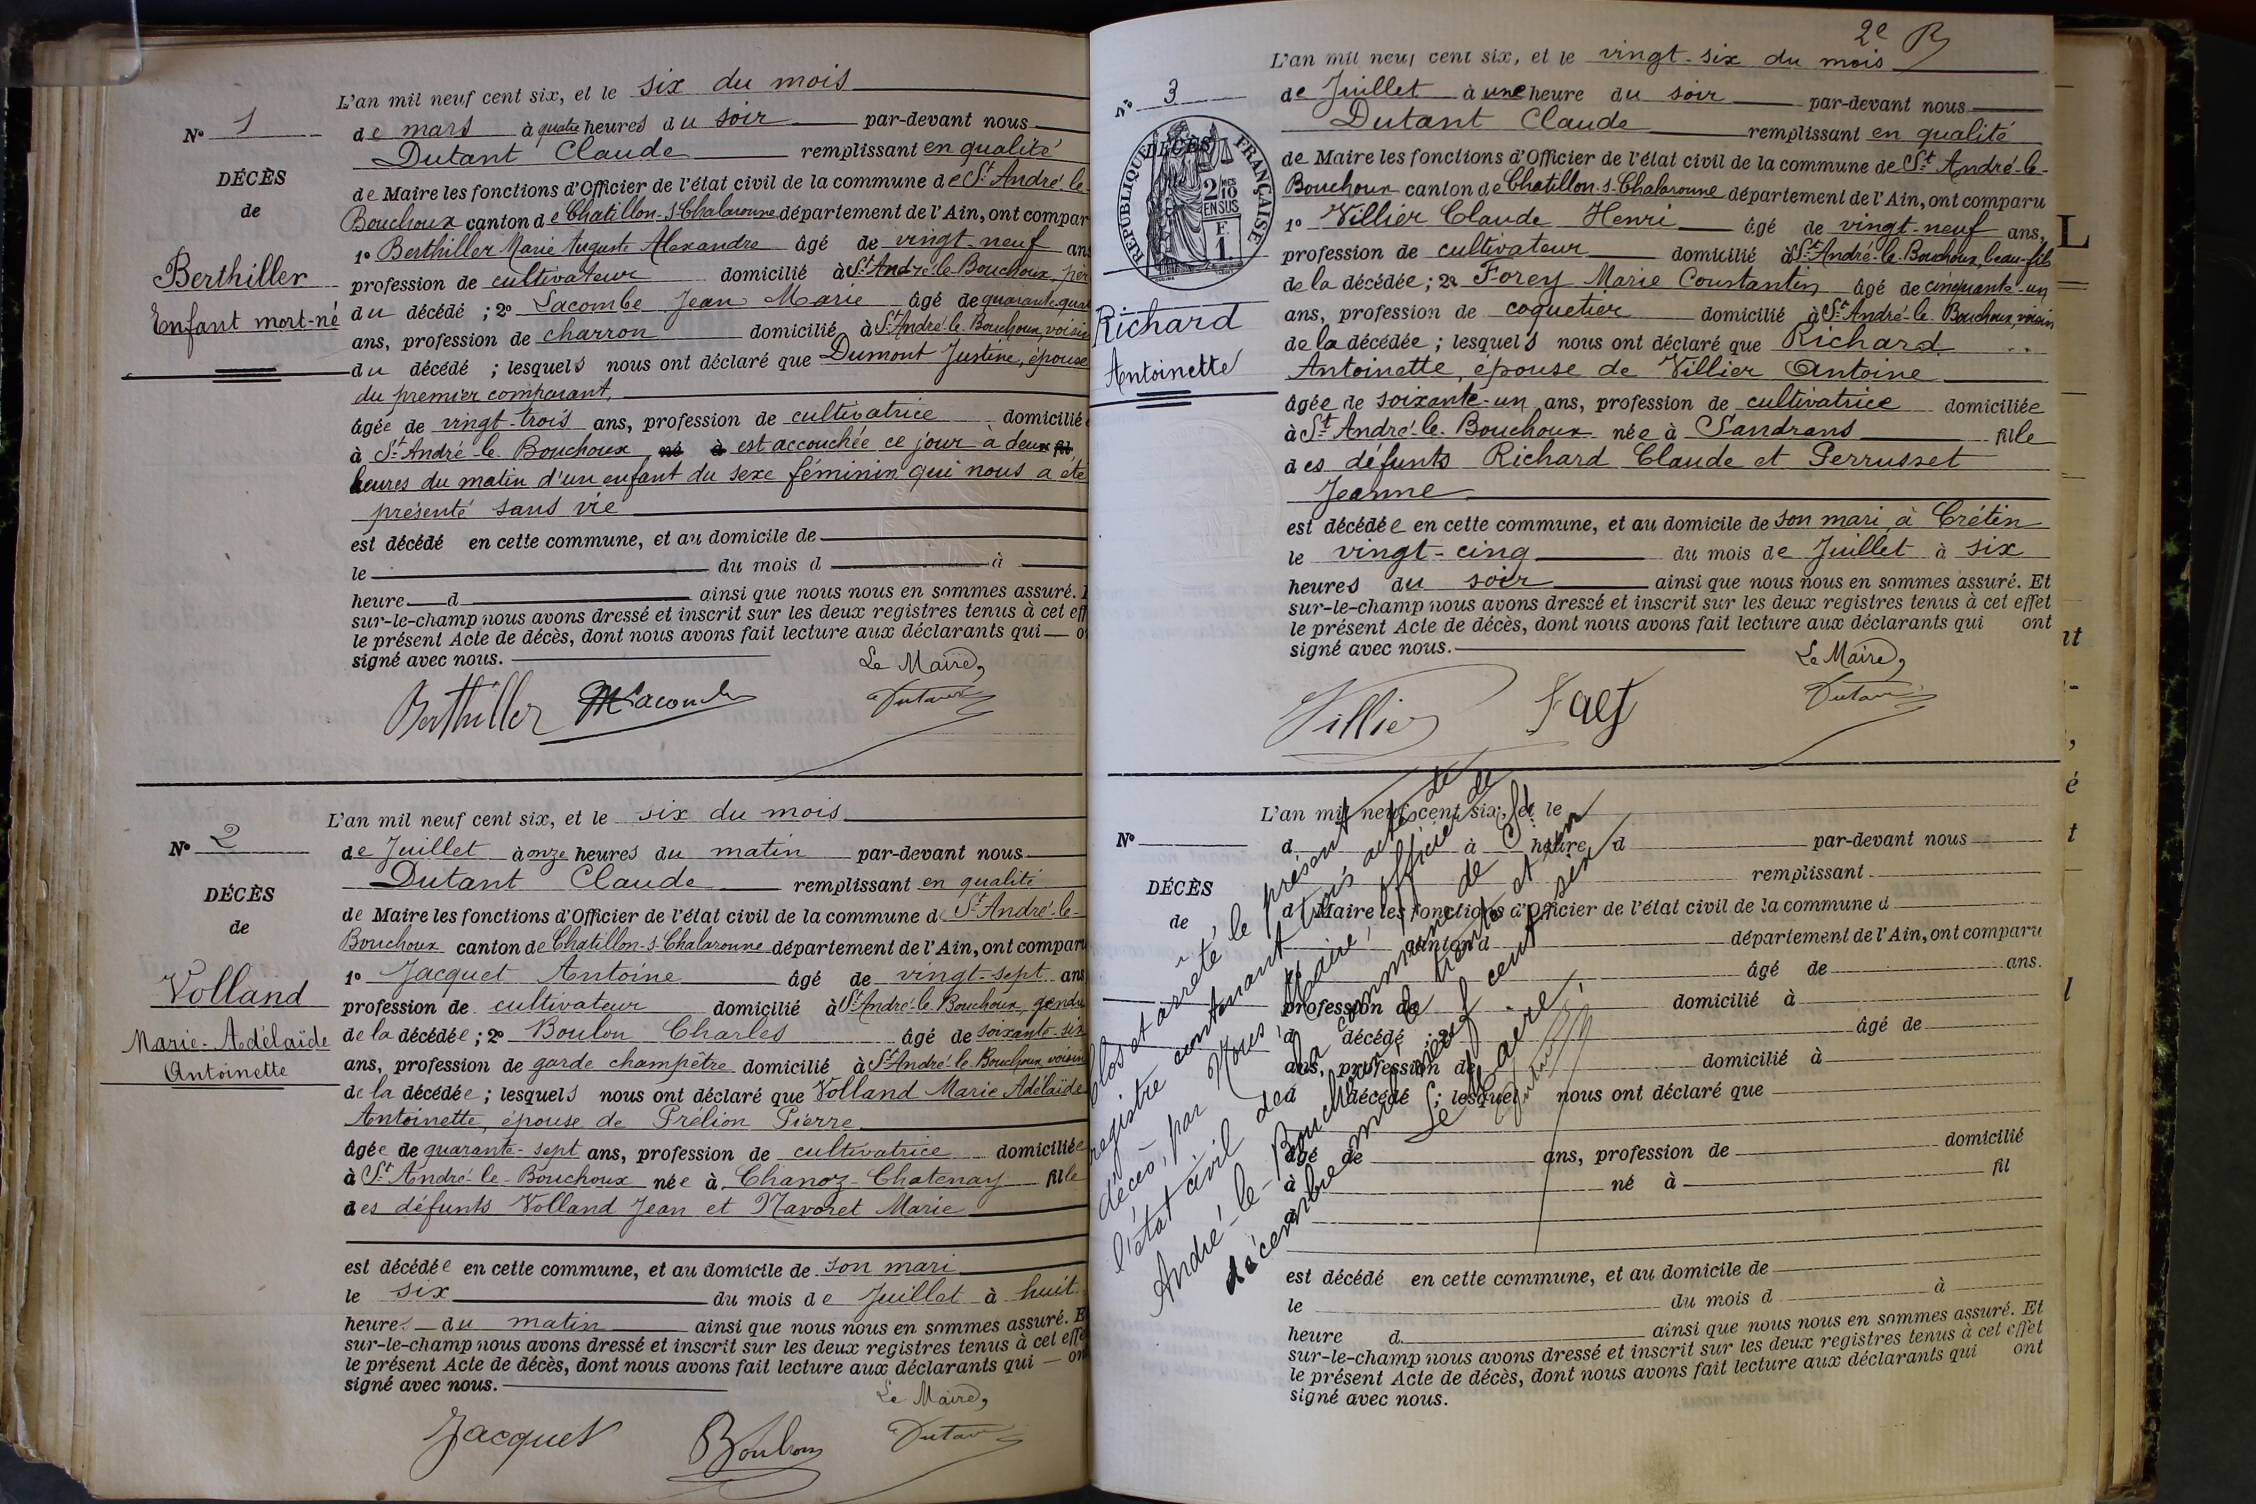 L'an mil neuf cent six, et le six du mois
N° 1
de mars à quatre heures du soir par-devant nous
Dutant Claude remplissant en qualité
DÉCÈS
de Maire les fonctions d'Officier de l'état civil de la commune de St André-le-
de
Bouchoux canton de Chatillon-s-Chalaronne département de l'Ain, ont compar
1° Berthiller Marie Auguste Alexandre âgé de vingt-neuf ans
Berthiller
profession de cultivateur domicilié à St André-le-Bouchoux, pèr
Enfant mort-né
du décédé ; 2° Lacombe Jean Marie âgé de quarante-quat
ans, profession de charron domicilié à St André-le-Bouchoux, voisin
du décédé ; lesquels nous ont déclaré que Dumont Justine, épouse
du premier comparant,
âgée de vingt-trois ans, profession de cultivatrice domicilié
à St André-le-Bouchoux né à est accouchée ce jour à deux fil
heures du matin d'un enfant du sexe féminin qui nous a été
présenté sans vie
est décédé en cette commune, et au domicile de
le du mois d à
heure d ainsi que nous nous en sommes assuré.
sur-le-champ nous avons dressé et inscrit sur les deux registres tenus à cet eff
le présent Acte de décès, dont nous avons fait lecture aux déclarants qui o
signé avec nous.
Le Maire,
Berthiller Lacombe Dutant
L'an mil neuf cent six, et le six du mois
N° 2
de Juillet à onze heures du matin par-devant nous
Dutant Claude remplissant en qualité
DÉCÈS
de Maire les fonctions d'Officier de l'état civil de la commune d St André-le-
de
Bouchoux canton de Chatillon-s-Chalaronne département de l'Ain, ont compar
1° Jacquet Antoine âgé de vingt-sept ans
Volland
profession de cultivateur domicilié à St André-le-Bouchoux, gendre
Marie-Adélaïde
de la décédée ; 2° Boulon Charles âgé de soixante-six
Antoinette
ans, profession de garde champêtre domicilié à St André-le-Bouchoux, voisin
de la décédée ; lesquels nous ont déclaré que Volland Marie Adélaïde
Antoinette, épouse de Prélion Pierre
âgée de quarante-sept ans, profession de cultivatrice domiciliée
à St André-le-Bouchoux née à Chanoz-Chatenay fille
des défunts Volland Jean et Navoret Marie
est décédée en cette commune, et au domicile de son mari
le six du mois de Juillet à huit
heures du matin ainsi que nous nous en sommes assuré. E
sur-le-champ nous avons dressé et inscrit sur les deux registres tenus à cet effe
le présent Acte de décès, dont nous avons fait lecture aux déclarants qui on
signé avec nous.
Le Maire,
Jacquet Boulon Dutant
2e
L'an mil neuf cent six, et le vingt-six du mois
N° 3
de Juillet à une heure du soir par-devant nous
Dutant Claude remplissant en qualité
DÉCÈS
RÉPUBLIQUE FRANÇAISE
2/10 EN SUS
F. 1.
de Maire les fonctions d'Officier de l'état civil de la commune de St André-le-
Bouchoux canton de Chatillon-s-Chalaronne département de l'Ain, ont comparu
1° Villier Claude Henri âgé de vingt-neuf ans,
profession de cultivateur domicilié à St André-le-Bouchoux, beau-fils
de la décédée ; 2° Forey Marie Constantin âgé de cinquante-un
Richard
ans, profession de coquetier domicilié à St André-le-Bouchoux, voisin
de la décédée ; lesquels nous ont déclaré que Richard
Antoinette
Antoinette, épouse de Villier Antoine
âgée de soixante-un ans, profession de cultivatrice domiciliée
à St André-le-Bouchoux née à Sandrans fille
des défunts Richard Claude et Perrusset
Jeanne
est décédée en cette commune, et au domicile de son mari, à Crétin
le vingt-cinq du mois de Juillet à six
heures du soir ainsi que nous nous en sommes assuré. Et
sur-le-champ nous avons dressé et inscrit sur les deux registres tenus à cet effet
le présent Acte de décès, dont nous avons fait lecture aux déclarants qui ont
signé avec nous.
Le Maire,
Villier Dutant
L'an mil neuf cent six, et le
N°
d à heure d par-devant nous
remplissant
DÉCÈS
d Maire les fonctions d'Officier de l'état civil de la commune d
de
canton d département de l'Ain, ont comparu
âgé de ans.
profession de domicilié à
d décédé ; 2° âgé de
ans, profession de domicilié à
d décédé ; lesquel nous ont déclaré que
âgé de ans, profession de domicilié
à né à fil
d
est décédé en cette commune, et au domicile de
le du mois d à
heure d ainsi que nous nous en sommes assuré. Et
sur-le-champ nous avons dressé et inscrit sur les deux registres tenus à cet effet
le présent Acte de décès, dont nous avons fait lecture aux déclarants qui ont
signé avec nous.
Clos et arrêté, le présent
registre contenant trois actes de
décès, par Nous, Maire, officier de
l'état civil de la commune de St
André-le-Bouchoux, le trente et un
décembre mil neuf cent six
Le Maire,
Dutant